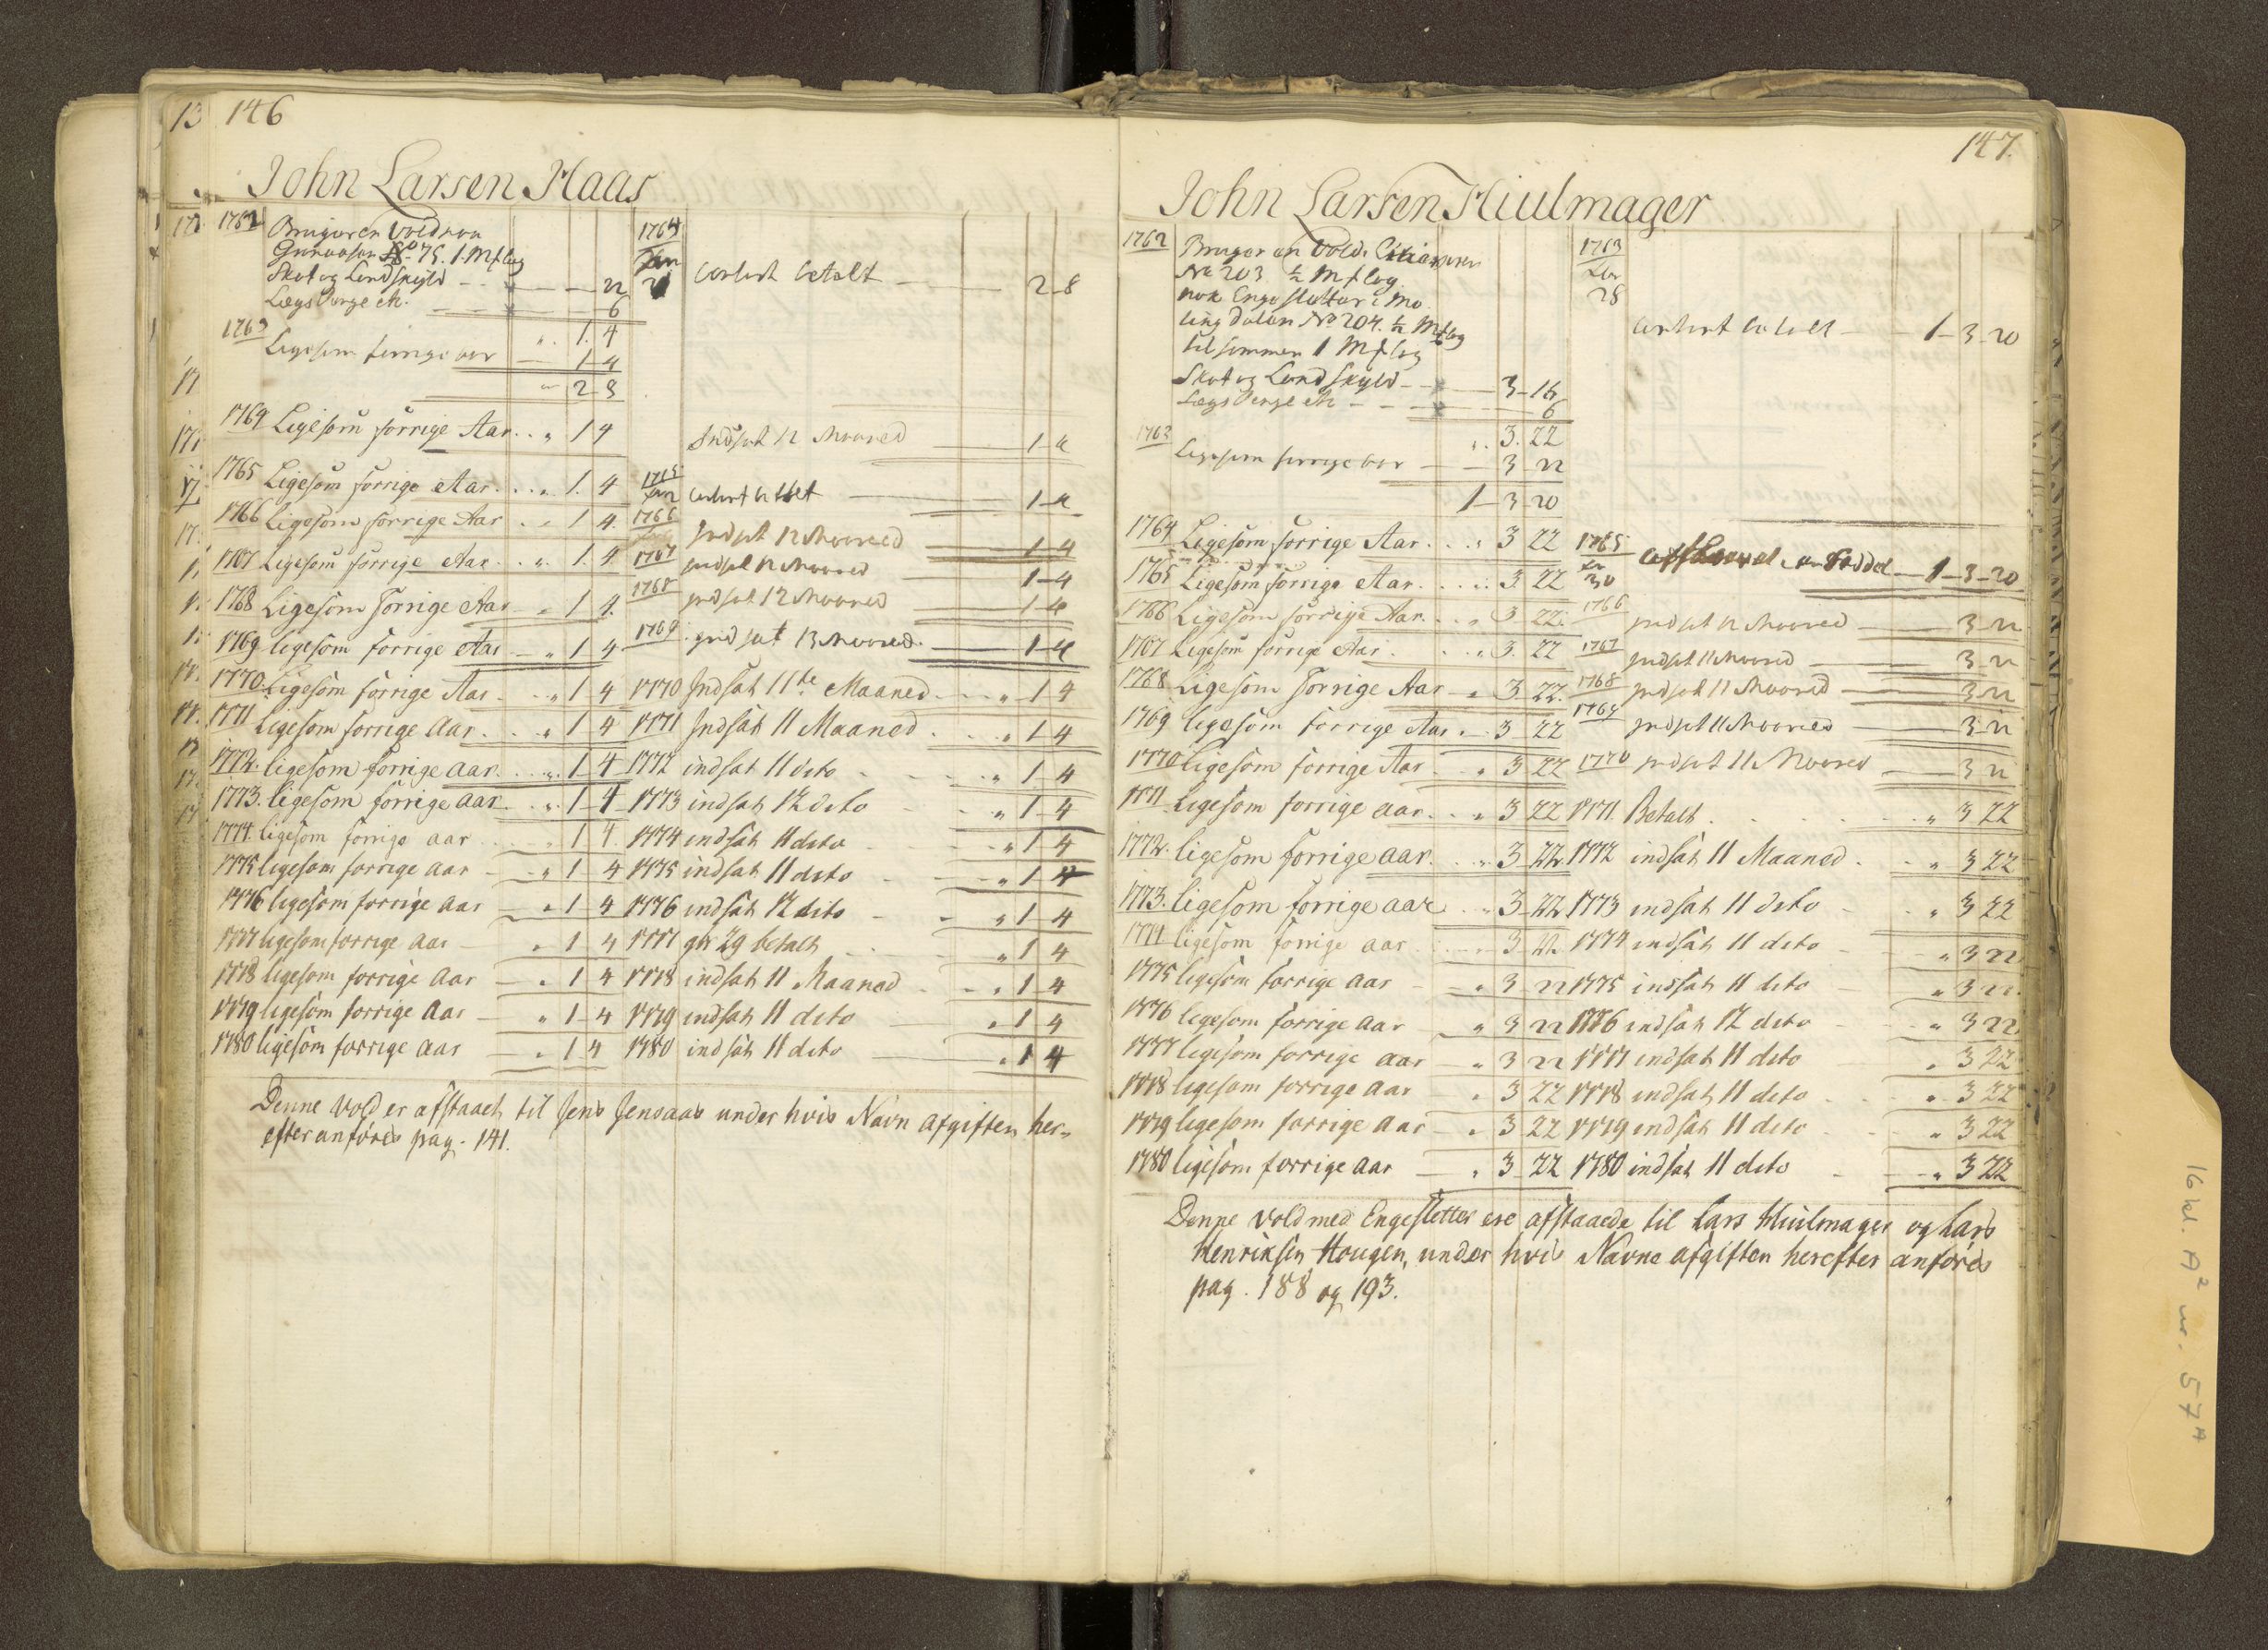 13 146
John Larsen Haas
1762 Bruger en Vold
No 75. 1. Mkleg
Skat og Landskyld - - 22
Lægs Penge etc. - 6
" . 1. 4
1763 Ligesom forrige aar - 1-4
" 2-8
1764 Ligesom forrige Aar . . " 1 4
1765 Ligesom forrige Aar . . . " 1. 4
1766 Ligesom forrige Aar . . " 1 4.
1767 Ligesom forrige Aar . . ". 1. 4
1768 Ligesom forrige Aar - " 1 4.
1769 ligesom forrige Aar - " 1 4
1770. Ligesom forrige Aar . . " 1 4
1771 Ligesom forrige Aar . . . " 1 4
1772. ligesom forrige aar. . . ". 1-4
1773. ligesom forrige aar. . . ". 1-4
1774. ligesom forrige aar . . . " 1 4.
1775 ligesom forrige aar - " 1 4
1776 ligesom forrige aar - " 1 4
1777 ligesom forrige aar - " 1 4
1778 ligesom forrige aar - " 1 4
1779 ligesom forrige aar - " 1 4
1780 ligesom forrige aar - " 1 4
1764
Jan
betalt - 2-8
Indsat 12 Maaned - 1-4
1765
Jan - 1-4
1766
Indsat 12 Maaned - 1-4
1767 Indsat 12 Maaned - 1-4
1768 Indsat 12 Maaned - 1-4
1769 Indsat 13 Maaned. - 1-4
1770 Indsat 11te Maaned - . . " 1 4
1771 Indsat 11 Maaned . . . " 1 4
1772 indsat 11 dito - . . " 1-4
1773 indsat 12 dito - . . " 1-4
1774 indsat 11 dito - . . " 1 4
1775 indsat 11 dito - . . " 1-4
1776 indsat 12 dito - - " 1 4
1777 29 betalt . . " 1 4
1778 indsat 11 Maaned . . " 1 4
1779 indsat 11 dito - " 1 4
1780 indsat 11 dito - " 1 4
Denne Vold er afstaaet til Jens Jensaas under hvis Navn Afgiften her-
efter anføres pag. 141.
147.
John Larsen Hiulmager
1762 Bruger en Vold
No 203 ½ Mkleg
nok Enge Sletter i Mo-
ling Dalen No 204. ½ Mkleg
tilsammen 1 Mkleg
Skat og Landskyld - - 3-16
Lægs Penge etc - - 6
". 3. 22
1763 Ligesom forrige aar - 3-22
1-3-20
1764 Ligesom forrige Aar . . . " 3 22
1765 Ligesom forrige Aar . . . " 3 22
1766 Ligesom forrige Aar . . . " 3 22.
1767 Ligesom forrige Aar . . . " 3. 22
1768 Ligesom forrige Aar - " 3-22.
1769 ligesom forrige Aar . " 3 22
1770 ligesom forrige Aar . . " 3 22
1771 Ligesom forrige aar . . " 3 22
1772. ligesom forrige aar. . . " 3-22.
1773. ligesom forrige aar . . " 3-22.
1774 ligesom forrige aar . . . " 3-22.
1775 ligesom forrige aar - " 3-22
1776 ligesom forrige aar - " 3-22
1777 ligesom forrige aar - " 3 22
1778 ligesom forrige aar - " 3 22
1779 ligesom forrige aar - " 3 22
1780 ligesom forrige aar - " 3 22
1763
28
1-3-20
1765
30 - 1-3-20
1766 Indsat 12 Maaned - 3-22
1767 Indsat 11 Maaned - 3-22
1768 Indsat 11 Maaned - 3-22
1769 Indsat 11 Maaned - 3-22
1770 Indsat 11 Maaned - 3-22
1771. Betalt . . . . . " 3 22
1772 indsat 11 Maaned . - . " 3 22
1773 indsat 11 dito - . " 3 22
1774 indsat 11 dito - - " 3 22
1775 indsat 11 dito - " 3 22.
1776 indsat 12 dito - - " 3 22
1777 indsat 11 dito " 3 22
1778 indsat 11 dito . . " 3 22
1779 indsat 11 dito . - " 3 22
1780 indsat 11 dito - - " 3 22
Denne Vold med Engesletter ere afstaaede til Lars Hiulmager og Lars
Henriksen Hougen, under hvis Navne afgiften herefter anføres
pag. 188 og 193.
16 kl. A² nr. 57ᴬ